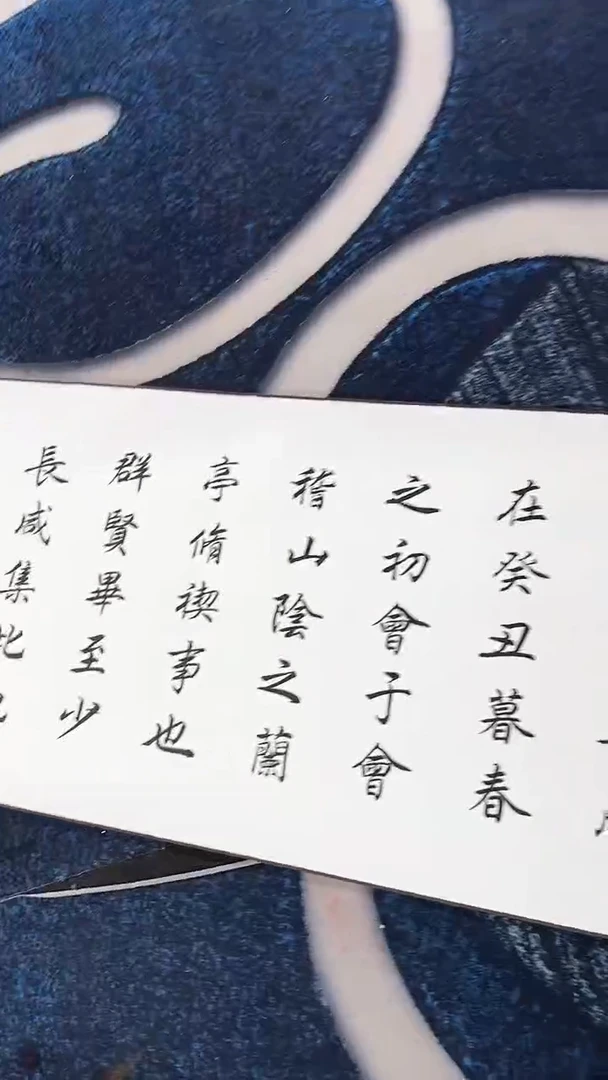 在癸丑暮春
之初會于會
稽山陰之蘭
亭脩禊事也
群賢畢至少
長咸集